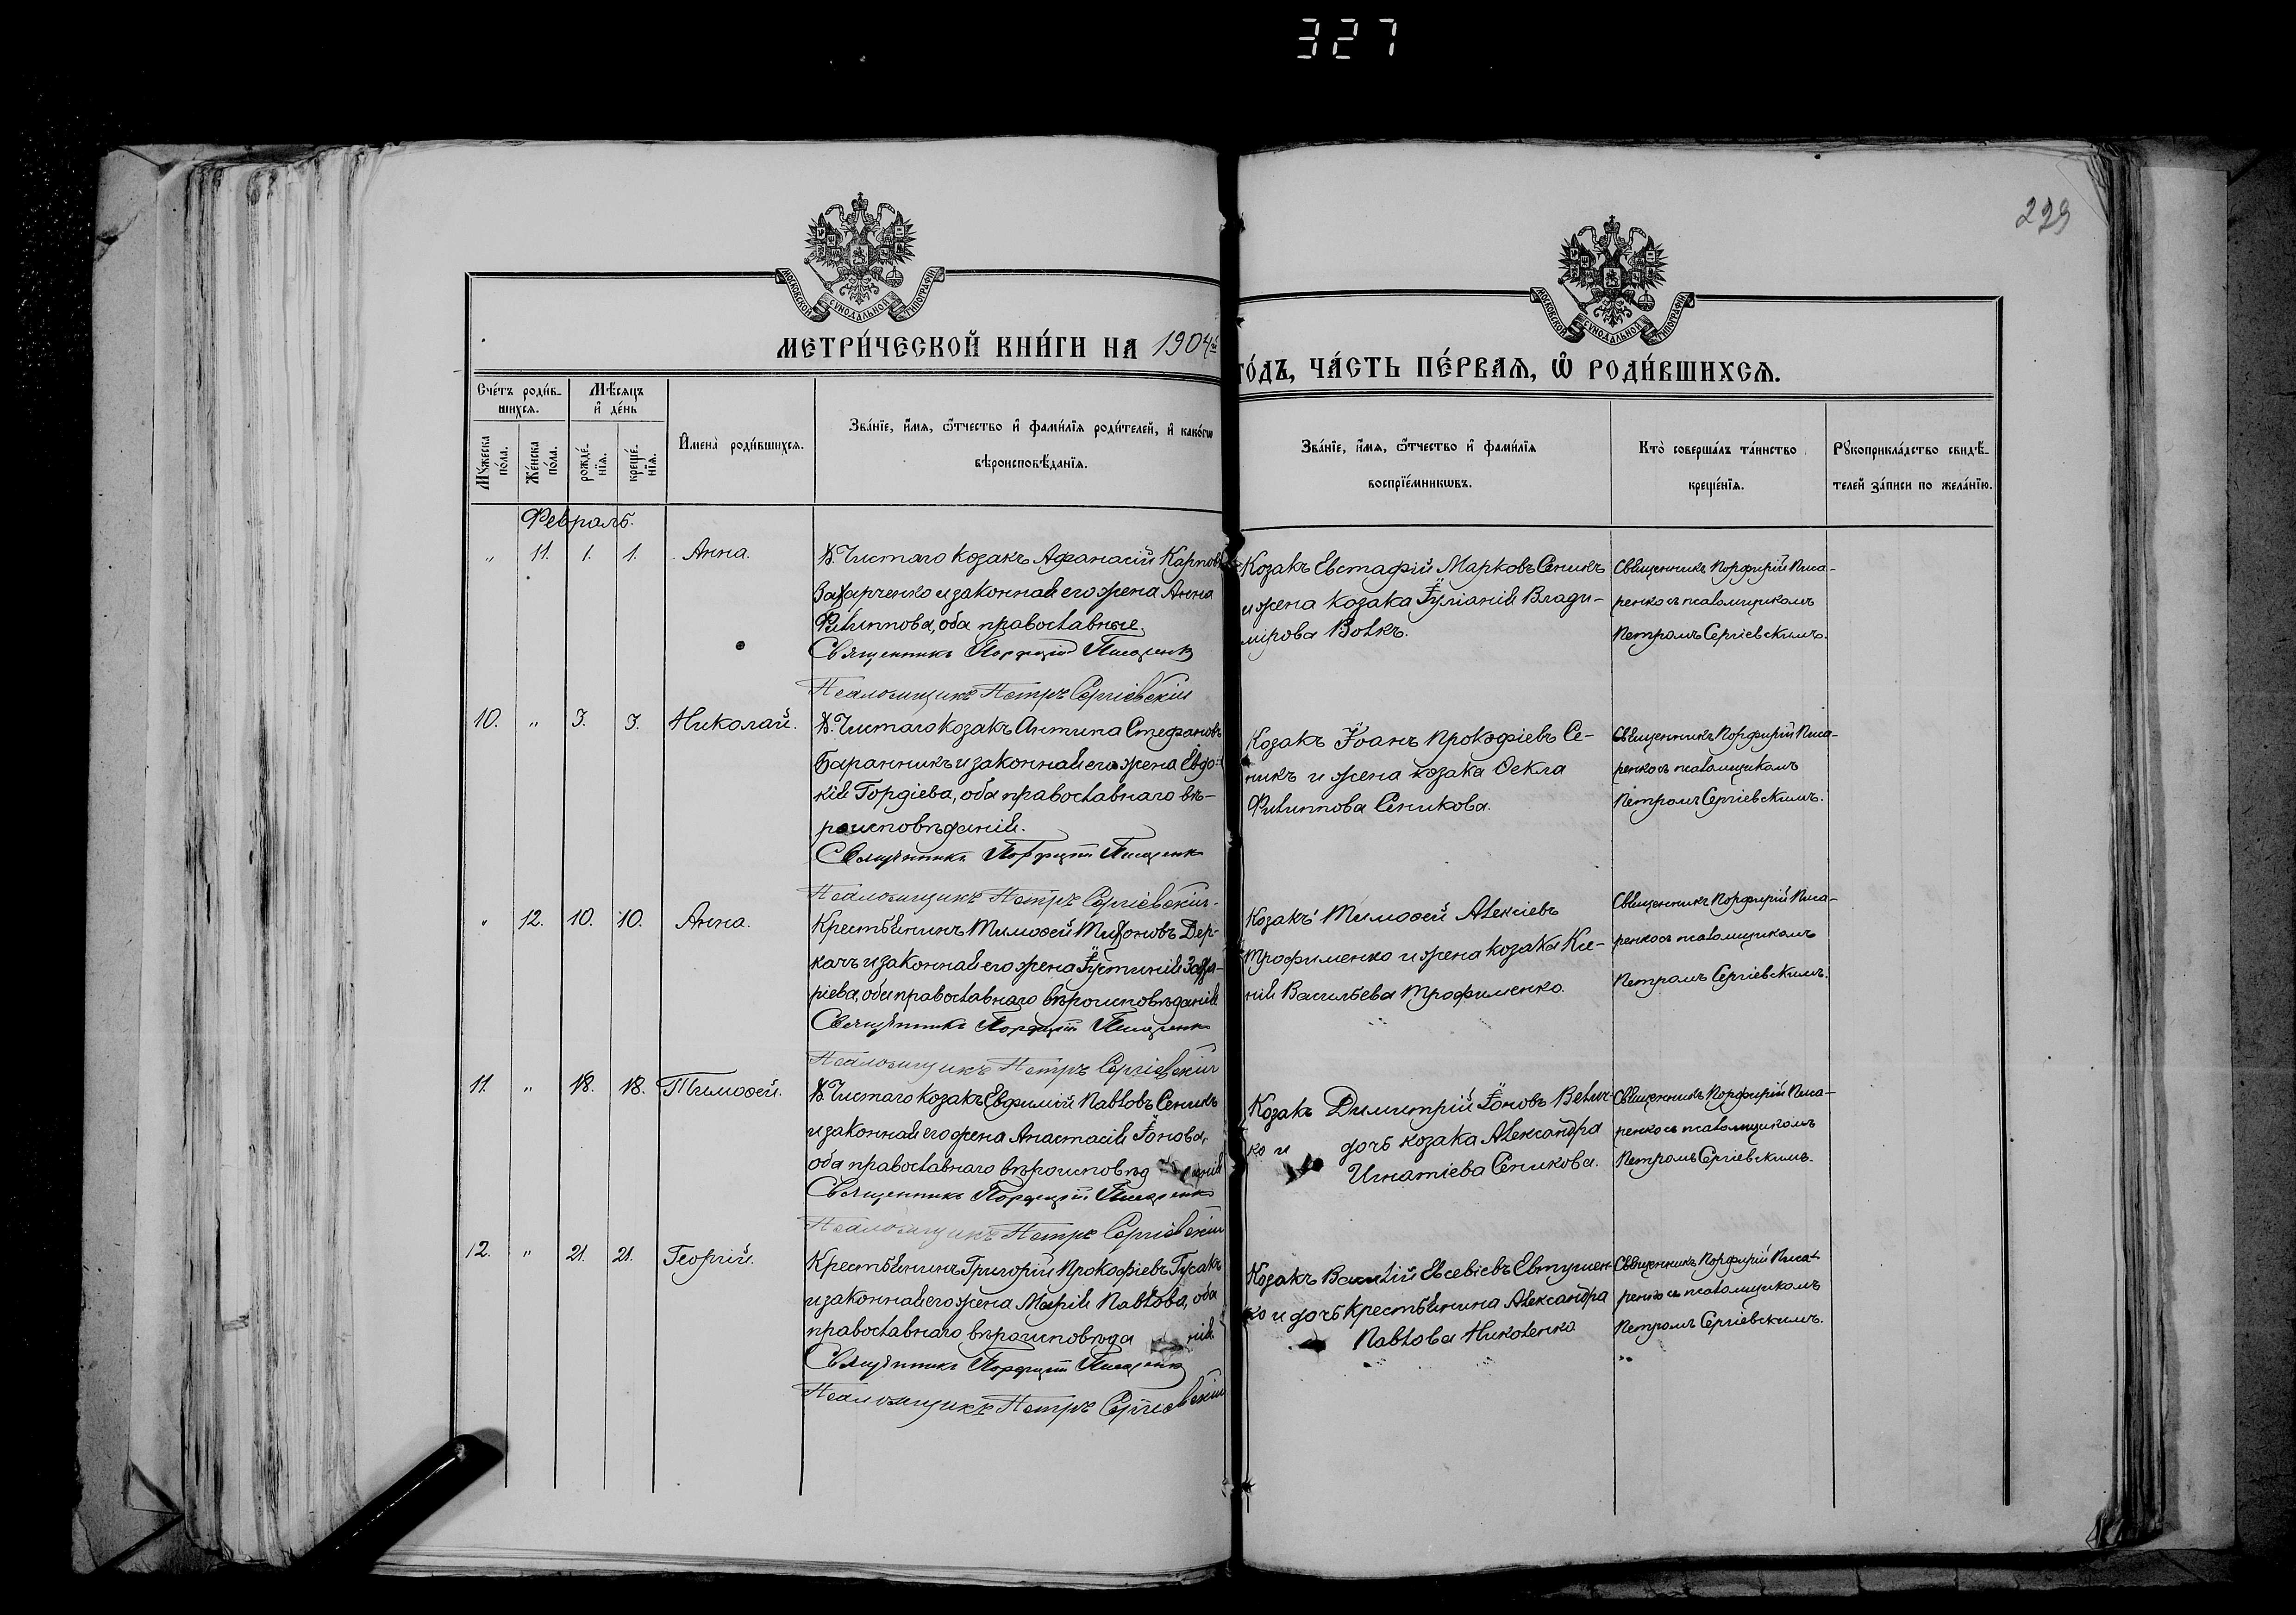 327
229
МОСКОВСКОЙ СѴНОДАЛЬНОЙ ТИПОГРАФІИ
МОСКОВСКОЙ СѴНОДАЛЬНОЙ ТИПОГРАФІИ
МЕТРИ́ЧЕСКОЙ КНИ́ГИ НА 1904й
ГО́ДЪ, ЧА́СТЬ ПЕ́РВАЯ, Ѡ҆ РОДИ́ВШИХСЯ.
Сче́тъ роди́в-
шихся.
Мѣ́сяцъ
и҆ де́нь
Мꙋ́жеска по́ла.
Же́нска по́ла.
рожде́-
нїя.
креще́-
нїя.
И҆мена̀ роди́вшихся.
Зва́нїе, и҆́мя, ѻ҆́тчество и҆ фами́лїя роди́телей, и҆ како́гѡ
вѣроисповѣ́данїя.
Зва́нїе, и҆́мя, ѻ҆́тчество и҆ фами́лїя
воспрїе́мникѡвъ.
Кто̀ соверша́лъ та́инство
креще́нїя.
Рꙋкоприкла́дство свидѣ́-
телей за́писи по жела́нїю.
Февраль.
„ 11. 1. 1. Анна.
Д. Чистаго козакъ Афанасій Карповъ
Захарченко и законная его жена Анна
Филиппова, оба православные.
Священникъ Порфирій Писаренко
Псаломщикъ Петръ Сергіевскій
Козакъ Евстафій Марковъ Сеникъ
и жена козака Іуліанія Влади-
мірова Волкъ.
Священникъ Порфирій Писа-
ренко съ псаломщикомъ
Петромъ Сергіевскимъ.
10. „ 3. 3. Николай.
Д. Чистаго козакъ Антипа Стефановъ
Баранникъ и законная его жена Евдо-
кія Гордіева, оба православнаго вѣ-
роисповѣданія.
Священникъ Порфирій Писаренко
Псаломщикъ Петръ Сергіевскій
Козакъ Іоанъ Прокофіевъ Се-
никъ и жена козака Ѳекла
Филиппова Сеникова.
Священникъ Порфирій Писа-
ренко съ псаломщикомъ
Петромъ Сергіевскимъ.
„ 12. 10. 10. Анна.
Крестьянинъ Тимоѳей Тихоновъ Дер-
качъ и законная его жена Іустинія Заха-
ріева, оба православнаго вѣроисповѣданія
Священникъ Порфирій Писаренко
Псаломщикъ Петръ Сергіевскій
Козакъ Тимоѳей Алексіевъ
Трофименко и жена козака Ксе-
нія Васильева Трофименко.
Священникъ Порфирій Писа-
ренко съ псаломщикомъ
Петромъ Сергіевскимъ.
11. „ 18. 18. Тимоѳей.
Д. Чистаго козакъ Евфимій Павловъ Сеникъ
и законная его жена Анастасія Іонова,
оба православнаго вѣроисповѣданія
Священникъ Порфирій Писаренко
Псаломщикъ Петръ Сергіевскій
Козакъ Димитрій Іоновъ Велич-
ко и дочь козака Александра
Игнатіева Сеникова.
Священникъ Порфирій Писа-
ренко съ псаломщикомъ
Петромъ Сергіевскимъ.
12. „ 21. 21. Георгій.
Крестьянинъ Григорій Прокофіевъ Гусакъ
и законная его жена Марія Павлова, оба
православнаго вѣроисповѣданія.
Священникъ Порфирій Писаренко
Псаломщикъ Петръ Сергіевскій
Козакъ Василій Евсевіевъ Евтушен-
ко и дочь крестьянина Александра
Павлова Николенко
Священникъ Порфирій Писа-
ренко съ псаломщикомъ
Петромъ Сергіевскимъ.